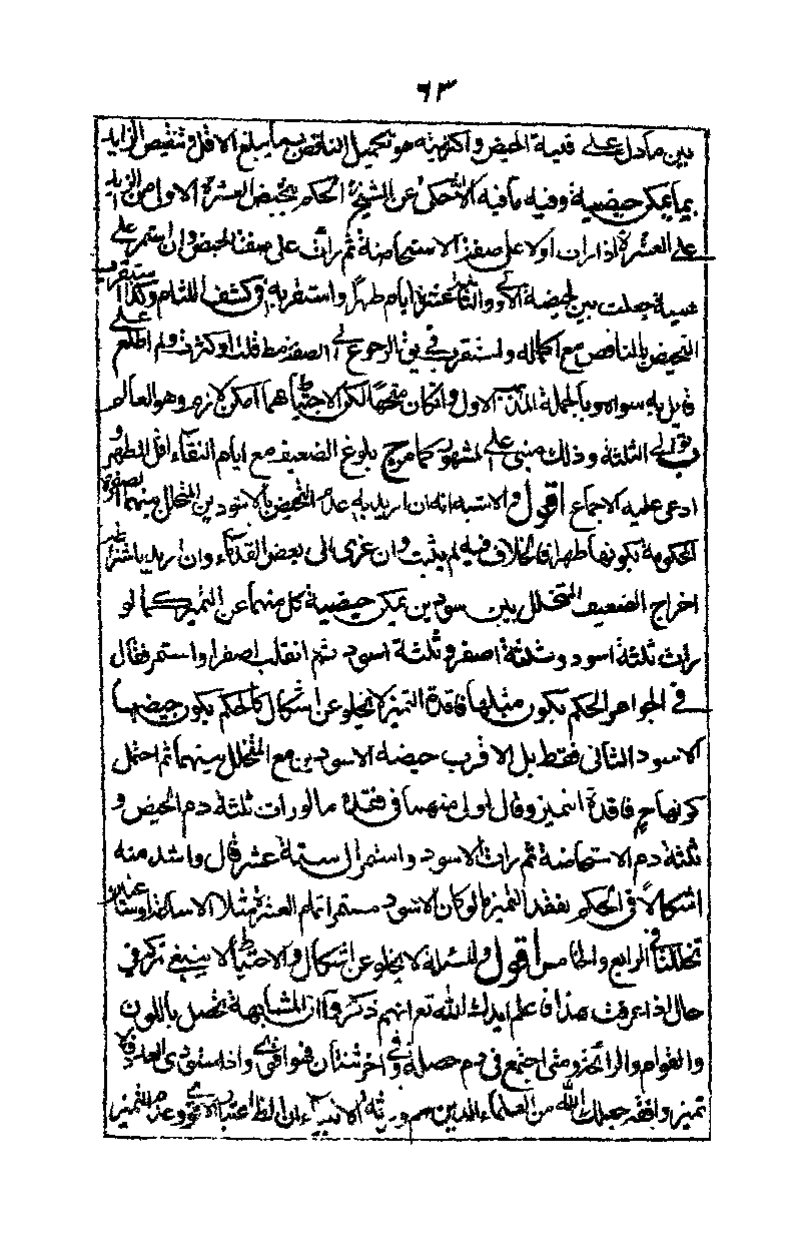 ٦٣
بين ما دل على قضية الحيض واكثريته هو تكميل الناقص بما يبلغ الاقل وتنقيص الزايد
بما يمكن حيضية وفيه ما فيه كالمحكى عن الشيخ الحكم بتحيض العشرة الاول من الزايد
على العشرة اذا رات اولا على صفة الاستحاضة ثم رات على صفة الحيض وان استمر على
جعلت بين الحيضة الاولى والثانية عشرة ايام طهرا واستقر به فى كشف اللثام وكذا
التحيض بالناقص مع اكماله الرجوع الى الصفة مط قلت او كثرت ولم اطلع على
قايل به سواه وبالجملة المذهب الاول وان كان متجها لكن الاحتياط مهما امكن لازم وهو العالم
الثلثة وذلك مبنى على المشهور كما مر ج بلوغ الضعيف مع ايام النقاء اقل الطهر و
ادعى عليه الاجماع اقول والاشبه انه ان اريد به عدم التحيض بالاسودين المتخلل بينهما
الحكومة بكونها طهرا فالخلاف فيه لم يثبت وان عزى الى بعض القدماء وان اريد باشتراط
اخراج الضعيف المتخلل بين سودين يمكن حيضية كل منهما عن التميز كما لو
رات ثلثة اسود وثلثة اصفر وثلثة اسود ثم انقلب اصفرا واستمر فقال
فى الجواهر الحكم بكون مثلها فاقدة التميز لا يخلو عن اشكال كالحكم بكون حيضها
الاسود الثانى فقط بل الاقرب حيضه الاسودين مع المتخلل بينهما ثم احتمل
كونها ح فاقدة التميز وقال اولى منهما فى فقده ما لو رات ثلثة دم الحيض و
ثلثة دم الاستحاضة ثم رات الاسود واستمر الى ستة عشر قال واشد منه
اشكالا فى الحكم بفقد التميز ما لو كان الاسود مستمرا تمام العشرة مثلا الا ساعة او ساعتين
تخللتا فى الرابع والخامس اقول والمسئلة لا يخلو عن اشكال والاحتياط لا ينبغى تركه فى
حال اذا عرفت هذا فاعلم ايدك الله تع انهم ذكروا ان المشابهة تحصل باللون
والقوام والرائحة ومتى اجتمع فى دم خصلة وفى اخر ثنتان فهو اقوى واذا استوى العدد فلا
تميز وافقه جعلك الله من العلماء الذين هم ورثة الانبياء ان اعتبار الاقوى وعدم التميز